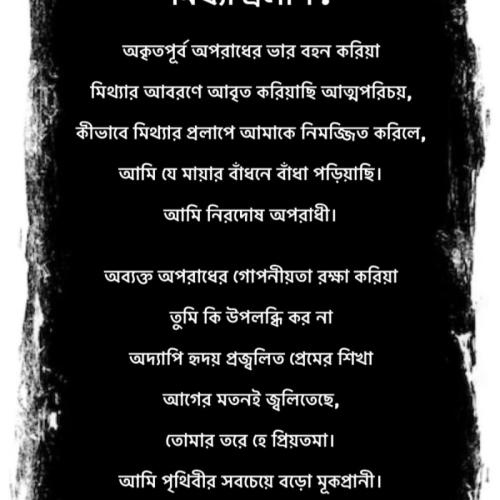 মিথ্যা প্রলাপ !
অকৃতপূর্ব অপরাধের ভার বহন করিয়া
মিথ্যার আবরণে আবৃত করিয়াছি আত্মপরিচয়,
কীভাবে মিথ্যার প্রলাপে আমাকে নিমজ্জিত করিলে,
আমি যে মায়ার বাঁধনে বাঁধা পড়িয়াছি।
আমি নিরদোষ অপরাধী।
অব্যক্ত অপরাধের গোপনীয়তা রক্ষা করিয়া
তুমি কি উপলব্ধি কর না
অদ্যাপি হৃদয় প্রজ্বলিত প্রেমের শিখা
আগের মতনই জ্বলিতেছে,
তোমার তরে হে প্রিয়তমা।
আমি পৃথিবীর সবচেয়ে বড়ো মূকপ্রানী।